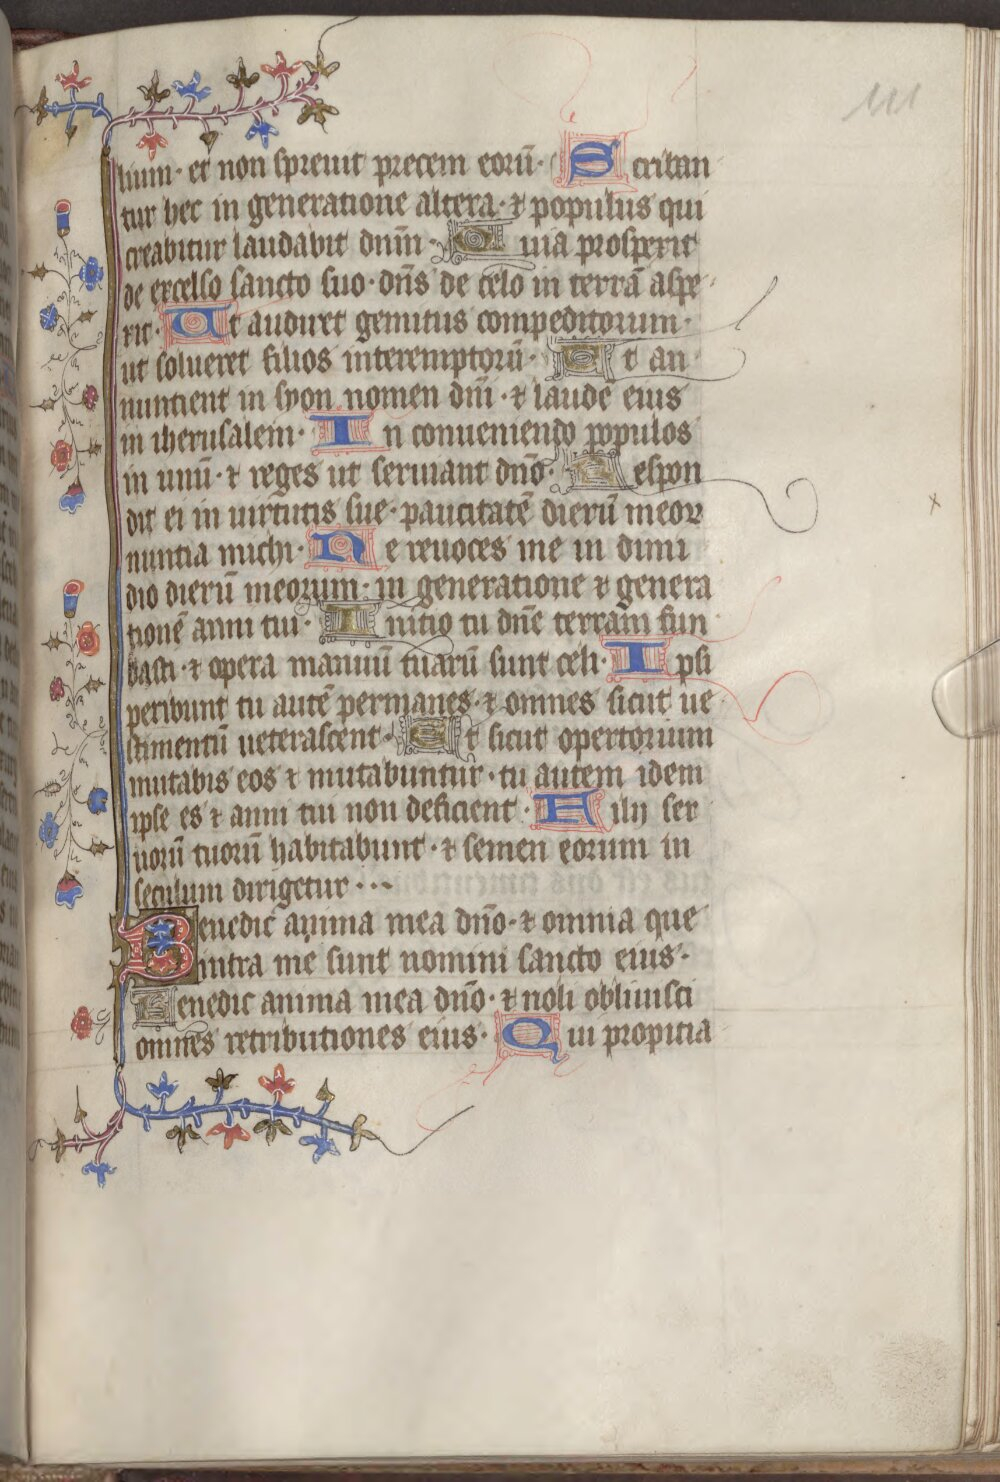 111
lium · et non spreuit precem eorū · Scriban
tur hec in generatione altera · ⁊ populus qui
creabitur laudabit dn̄m · Quia prosperit
de excelso sancto suo · dn̄s de celo in terrā aspe
rit · Ut audiret gemitus compeditorum ·
ut solueret filios interemptorū · Ut an
nuntient in syon nomen dn̄i · ⁊ laudē eius
in iherusalem · In conueniendo populos
in unū · ⁊ reges ut seruiant dn̄o · Respon
dit ei in uirtutis sue · paucitatē dierū meoꝝ
nuntia michi · Ne reuoces me in dimi
dio dierū meorum · in generatione ⁊ genera
tionē anni tui · Initio tu dn̄e terram fun
dasti · ⁊ opera manuū tuarū sunt celi · Ipsi
peribunt tu autē permanes · ⁊ omnes sicut ue
stimentū ueterascent · Et sicut opertorium
mutabis eos ⁊ mutabuntur · tu autem idem
ipse es ⁊ anni tui non deficient · Filij ser
uorū tuorū habitabunt · ⁊ semen eorum in
seculum dirigetur · · ·
Benedic anima mea dn̄o · ⁊ omnia que
intra me sunt nomini sancto eius ·
Benedic anima mea dn̄o · ⁊ noli obliuisci
omnes retributiones eius · Qui propitia